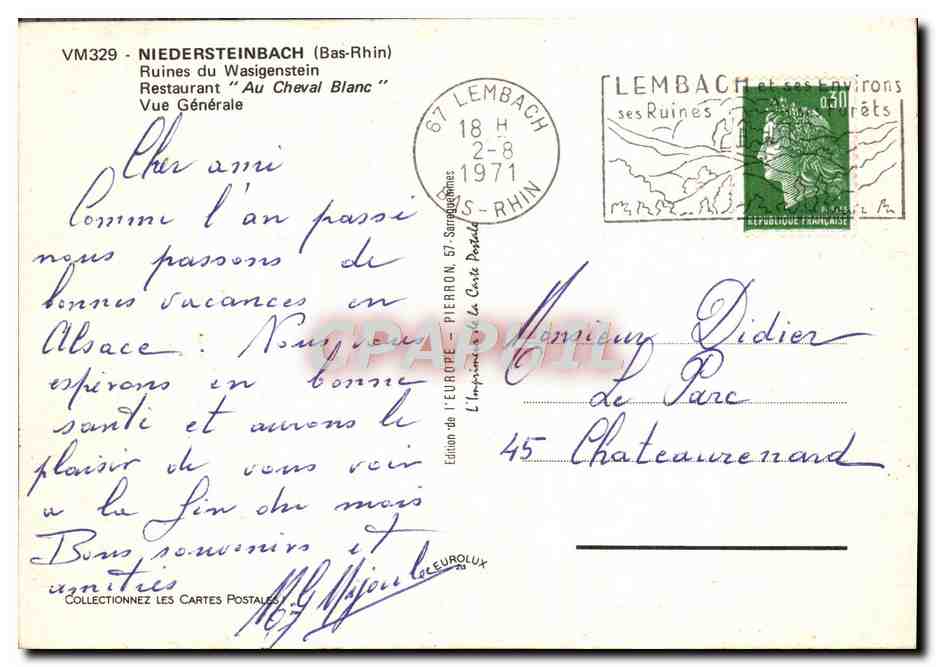 VM329 - NIEDERSTEINBACH (Bas-Rhin)
Ruines du Wasigenstein
Restaurant "Au Cheval Blanc"
Vue Générale
Cher ami
Comme l'an passé
nous passons de
bonnes vacances en
Alsace. Nous vous
espérons en bonne
santé et aurons le
plaisir de vous voir
a la fin du mois
Bons souvenirs et
amitiés
COLLECTIONNEZ LES CARTES POSTALES
EUROLUX
Edition de l'EUROPE - PIERRON, 57 - Sarreguemines
L'Imprimeur de la Carte Postale
67 LEMBACH
18 H
2-8
1971
BAS-RHIN
LEMBACH et ses Environs
ses Ruines ses Forêts
0,30
REPUBLIQUE FRANÇAISE
CPAPHIL
Monsieur Didier
Le Parc
45 Chateaurenard